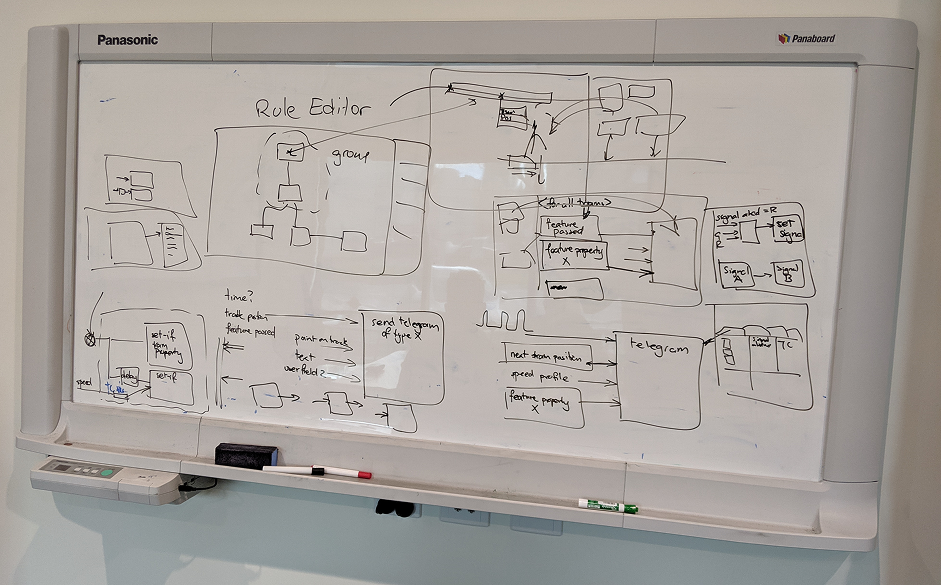 Panasonic
Panaboard
Rule Editor
group
<for all trains>
feature
passed
feature property
X
signal ated = R
G
R
set
signal
Signal
A
Signal
B
time?
feature passed
point on track
text
userfield?
send telegram
of type X
set-if
property
delay
set-if
speed
next
position
speed profile
feature property
X
telegram
TC